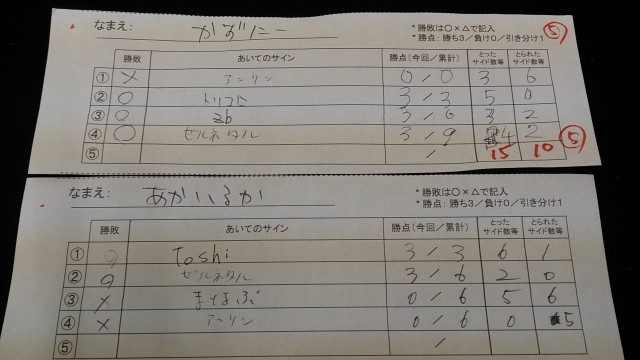 なまえ: かずにー *勝敗は○×△で記入 ⑤
*勝点:勝ち3/負け0/引き分け1
勝敗 あいてのサイン 勝点(今回/累計) とったサイド数等 とられたサイド数等
① × アンリン 0/0 3 6
② ○ トリコロ 3/3 5 0
③ ○ zb 3/6 3 2
④ ○ ゼルネタル 3/9 4 2 ⑤
⑤ / 15 10
なまえ: あかいるか *勝敗は○×△で記入
*勝点:勝ち3/負け0/引き分け1
勝敗 あいてのサイン 勝点(今回/累計) とったサイド数等 とられたサイド数等
① ○ toshi 3/3 6 1
② ○ ゼルネタル 3/6 2 0
③ × まはぶ 0/6 5 6
④ × アンリン 0/6 0 5
⑤ /